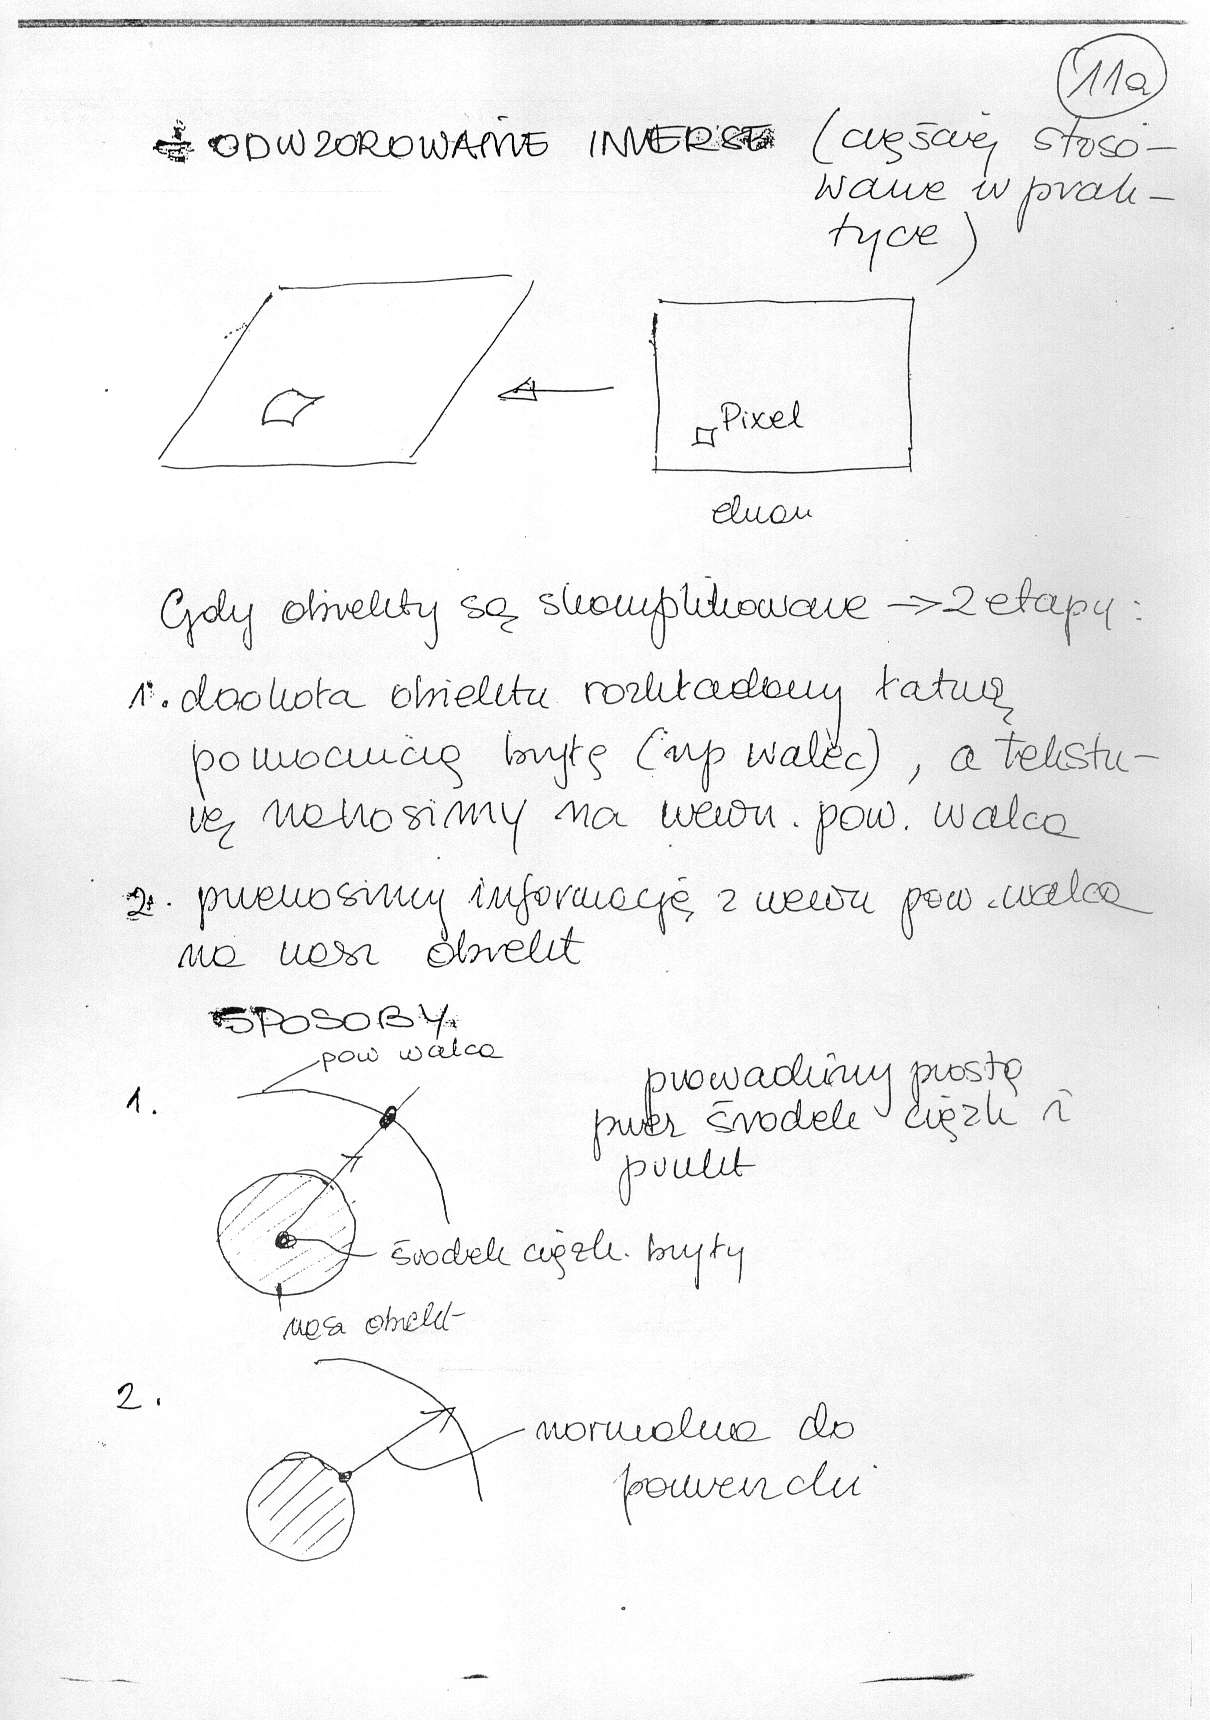 11a
ODWZOROWANIE INVERSE (częściej stoso-
wane w prak-
tyce)
Pixel
ekran
Gdy obiekty są skomplikowane → 2 etapy:
1. dookoła obiektu rozkładamy łatwą
pomocniczą bryłę (np walec), a tekstu-
rę nanosimy na wewn. pow. walca
2. przenosimy informację z wewn pow. walca
na nasz obiekt
SPOSOBY.
pow walca
1.
prowadzimy prostą
przez środek ciężk i
punkt
środek ciężk. bryły
nasz obiekt
2.
normalna do
powierzchni